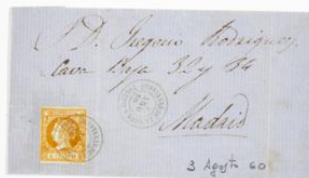 S. D. Gregorio Rodriguez
Cava Baja 32 y 34
Madrid
3 Agosto 60